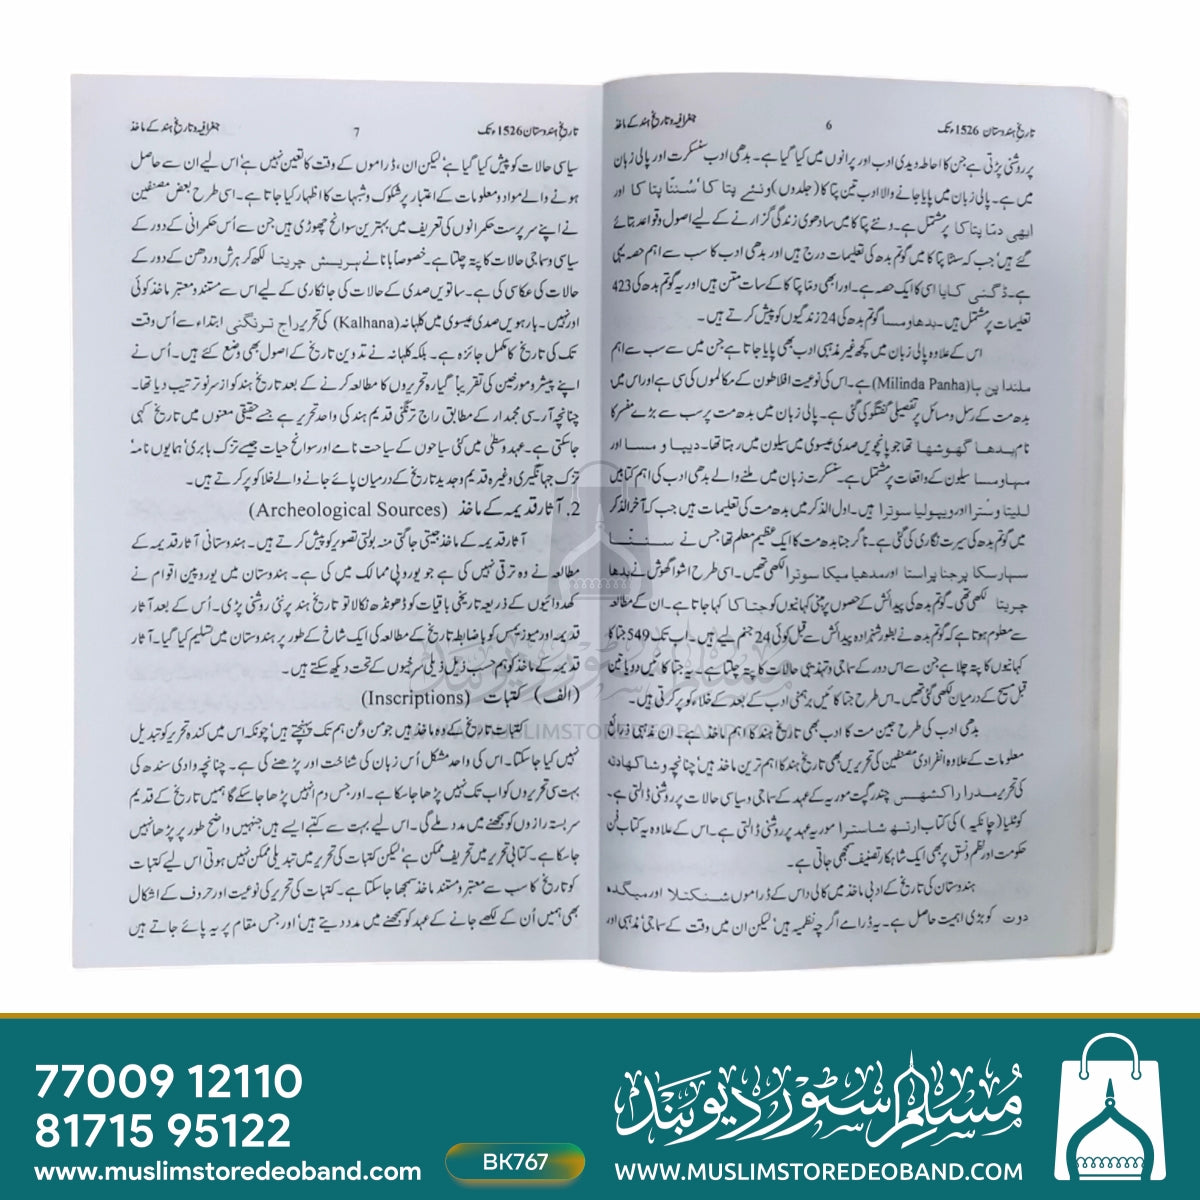 تاریخ ہندوستان 1526ء تک 6 جغرافیہ و تاریخ ہند کے ماخذ
پر روشنی پڑتی ہے جن کا احاطہ ویدی ادب اور پرانوں میں کیا گیا ہے۔ بدھی ادب سنسکرت اور پالی زبان
میں ہے۔ پالی زبان میں پایا جانے والا ادب تین پتاکا (جلدوں) ونئے پتا کا‘ سُننتا پتا کا اور
ابھی دمّا پتاکا پر مشتمل ہے۔ ونئے پتاکا میں سادھوی زندگی گزارنے کے لیے اصول و قواعد بتائے
گئے ہیں‘ جب کہ ستتا پتا کا میں گوتم بدھ کی تعلیمات درج ہیں اور بدھی ادب کا سب سے اہم حصہ یہی
ہے۔ ڈگنی کایا اسی کا ایک حصہ ہے۔ اور ابھی دمّا پتاکا کے سات متن ہیں اور یہ گوتم بدھ کی 423
تعلیمات پر مشتمل ہیں۔ بدھا ومسا گوتم بدھ کی 24 زندگیوں کو پیش کرتے ہیں۔
اس کے علاوہ پالی زبان میں کچھ غیر مذہبی ادب بھی پایا جاتا ہے جن میں سے سب سے اہم
ملندا پن ہا (Milinda Panha) ہے۔ اس کی نوعیت افلاطون کے مکالموں کی سی ہے اور اس میں
بدھ مت کے رسل و مسائل پر تفصیلی گفتگو کی گئی ہے۔ پالی زبان میں بدھ مت پر سب سے بڑے مفسر کا
نام بدھا گھوشھا تھا جو پانچویں صدی عیسوی میں سیلون میں رہتا تھا۔ دیپا و مسا اور
مہاومسا سیلون کے واقعات پر مشتمل ہے۔ سنسکرت زبان میں ملنے والے بدھی ادب کی اہم کتابیں
للیتا وسترا اور ویپولیا سوترا ہیں۔ اول الذکر میں بدھ مت کی تعلیمات ہیں جب کہ آخر الذکر
میں گوتم بدھ کی سیرت نگاری کی گئی ہے۔ ناگرجنا بدھ مت کا ایک عظیم معلم تھا جس نے
سہارسکا پرجنا پراستا اور مدھیا میکا سوترا لکھی تھیں۔ اسی طرح اشواگھوش نے بدھا
چریتا لکھی تھی۔ گوتم بدھ کی پیدائش کے حصوں پر مبنی کہانیوں کو جتاکا کہا جاتا ہے۔ ان کے مطالعہ
سے معلوم ہوتا ہے کہ گوتم بدھ نے بطور شہزادہ پیدائش سے قبل کوئی 24 جنم لیے ہیں۔ اب تک 549 جتاکا
کہانیوں کا پتہ چلا ہے جن سے اس دور کے سماجی و تہذیبی حالات کا پتہ چلتا ہے۔ یہ جتاکائیں دو یا تین
قبل مسیح کے درمیان لکھی گئی تھیں۔ اس طرح جتا کائیں برہمنی ادب کے بعد کے خلاء کو پر کرتی ہیں۔
بدھی ادب کی طرح جین مت کا ادب بھی تاریخ ہند کا اہم ماخذ ہے۔ ان مذہبی ذرائی
معلومات کے علاوہ انفرادی مصنفین کی تحریریں بھی تاریخ ہند کا اہم ترین ماخذ ہیں‘ چنانچہ وشاکھا دتہ
کی تحریر مدرا راکشھس چندر گپت موریہ کے عہد کے سماجی و سیاسی حالات پر روشنی ڈالتی ہے۔
کوٹلیا (چانکیہ) کی کتاب ارتھ شاسترا موریہ عہد پر روشنی ڈالتی ہے۔ اس کے علاوہ یہ کتاب فن
حکومت اور نظم و نسق پر بھی ایک شاہکار تصنیف سمجھی جاتی ہے۔
ہندوستان کی تاریخ کے ادبی ماخذ میں کالی داس کے ڈراموں شنکنتلا اور میگدہ
دوت کو بڑی اہمیت حاصل ہے۔ یہ ڈرامے اگرچہ نظمیہ ہیں‘ لیکن ان میں وقت کے سماجی‘ مذہبی اور
تاریخ ہندوستان 1526ء تک 7 جغرافیہ و تاریخ ہند کے ماخذ
سیاسی حالات کو پیش کیا گیا ہے‘ لیکن ان، ڈراموں کے وقت کا تعین نہیں ہے‘ اس لیے ان سے حاصل
ہونے والے مواد و معلومات کے اعتبار پر شکوک و شبہات کا اظہار کیا جاتا ہے۔ اسی طرح بعض مصنفین
نے اپنے سرپرست حکمرانوں کی تعریف میں بہترین سوانح چھوڑی ہیں جن سے اُس حکمرانی کے دور کے
سیاسی و سماجی حالات کا پتہ چلتا ہے۔ خصوصاً بانا نے ہریش چریتا لکھ کر ہرش وردھن کے دور کے
حالات کی عکاسی کی ہے۔ ساتویں صدی کے حالات کی جانکاری کے لیے اس سے مستند و معتبر ماخذ کوئی
اور نہیں۔ بارہویں صدی عیسوی میں کلہانہ (Kalhana) کی تحریر راج ترنگنی ابتداء سے اُس وقت
تک کی تاریخ کا مکمل جائزہ ہے۔ بلکہ کلہانہ نے تدوین تاریخ کے اصول بھی وضع کئے ہیں۔ اُس نے
اپنے پیشرو مورخین کی تقریباً گیارہ تحریروں کا مطالعہ کرنے کے بعد تاریخ ہند کو از سر نو ترتیب دیا تھا۔
چنانچہ آر۔سی مجمدار کے مطابق راج ترنگنی قدیم ہند کی واحد تحریر ہے جسے حقیقی معنوں میں تاریخ کہی
جاسکتی ہے۔ عہد وسطیٰ میں کئی سیاحوں کے سیاحت نامے اور سوانح حیات جیسے تزک بابری‘ ہمایوں نامہ‘
تزک جہانگیری وغیرہ قدیم و جدید تاریخ کے درمیان پائے جانے والے خلا کو پر کرتے ہیں۔
2. آثار قدیمہ کے ماخذ (Archeological Sources)
آثار قدیمہ کے ماخذ جیتی جاگتی منہ بولتی تصویر کو پیش کرتے ہیں۔ ہندوستانی آثار قدیمہ کے
مطالعہ نے وہ ترقی نہیں کی ہے جو یوروپی ممالک میں کی ہے۔ ہندوستان میں یوروپین اقوام نے
کھدوائیوں کے ذریعہ تاریخی باقیات کو ڈھونڈھ نکالا تو تاریخ ہند پر نئی روشنی پڑی۔ اُس کے بعد آثار
قدیمہ اور میوزیمس کو باضابطہ تاریخ کے مطالعہ کی ایک شاخ کے طور پر ہندوستان میں تسلیم کیا گیا۔ آثار
قدیمہ کے ماخذ کو ہم حسب ذیل ذیلی سرخیوں کے تحت دیکھ سکتے ہیں۔
(الف) کتبات (Inscriptions)
کتبات تاریخ کے وہ ماخذ ہیں جو من و عن ہم تک پہنچتے ہیں‘ چونکہ اس میں کندہ تحریر کو تبدیل
نہیں کیا جا سکتا۔ اس کی واحد مشکل اُس زبان کی شناخت اور پڑھنے کی ہے۔ چنانچہ وادی سندھ کی
بہت سی تحریروں کو اب تک نہیں پڑھا جا سکا ہے۔ اور جس دم انہیں پڑھا جا سکے گا ہمیں تاریخ کے قدیم
سربستہ رازوں کو سمجھنے میں مدد ملے گی۔ اس لیے بہت سے کتبے ایسے ہیں جنہیں واضح طور پر پڑھا نہیں
جا سکا ہے۔ کتابی تحریر میں تحریف ممکن ہے‘ لیکن کتبات کی تحریر میں تبدیلی ممکن نہیں ہوتی اس لیے کتبات
کو تاریخ کا سب سے معتبر و مستند ماخذ سمجھا جا سکتا ہے۔ کتبات کی تحریر کی نوعیت اور حروف کے اشکال
بھی ہمیں اُن کے لکھے جانے کے عہد کو سمجھنے میں مدد دیتے ہیں‘ اور جس مقام پر یہ پائے جاتے ہیں
مسلم سٹور دیوبند
WWW.MUSLIMSTOREDEOBAND.COM
77009 12110
81715 95122
www.muslimstoredeoband.com
BK767
مسلم سٹور دیوبند
WWW.MUSLIMSTOREDEOBAND.COM